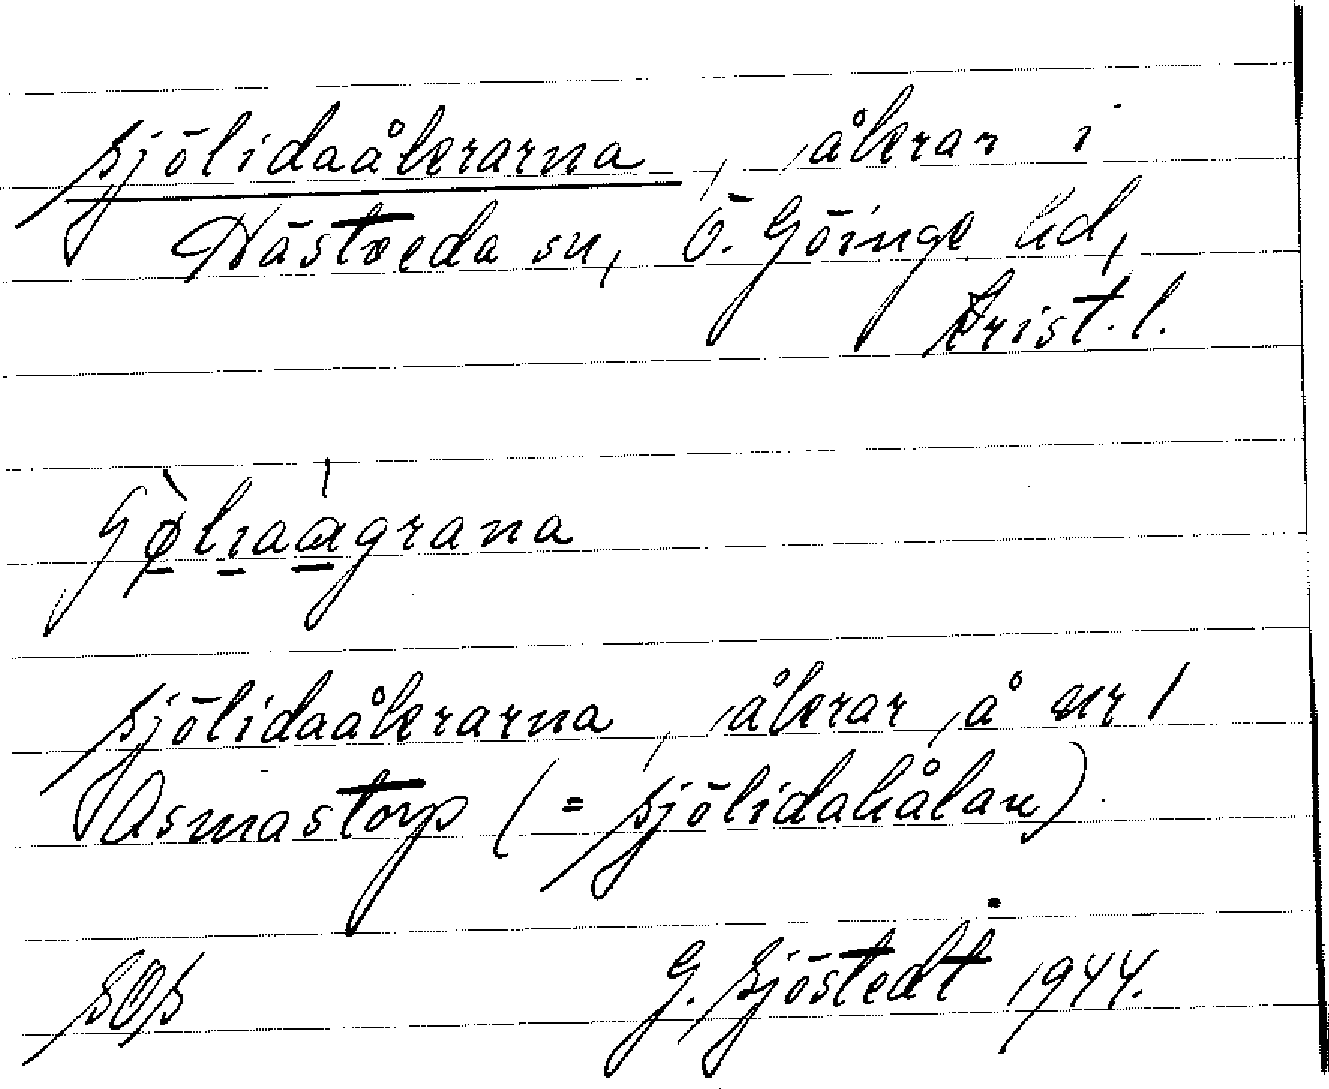 Sjölidaåkrarna, åkrar i
Hästveda sn, Ö. Göinge hd,
Krist. l.
Sjölidaåkrarna, åkrar å nr 1
Asmastorp (= Sjölidahålan)
G. Sjöstedt 1944.